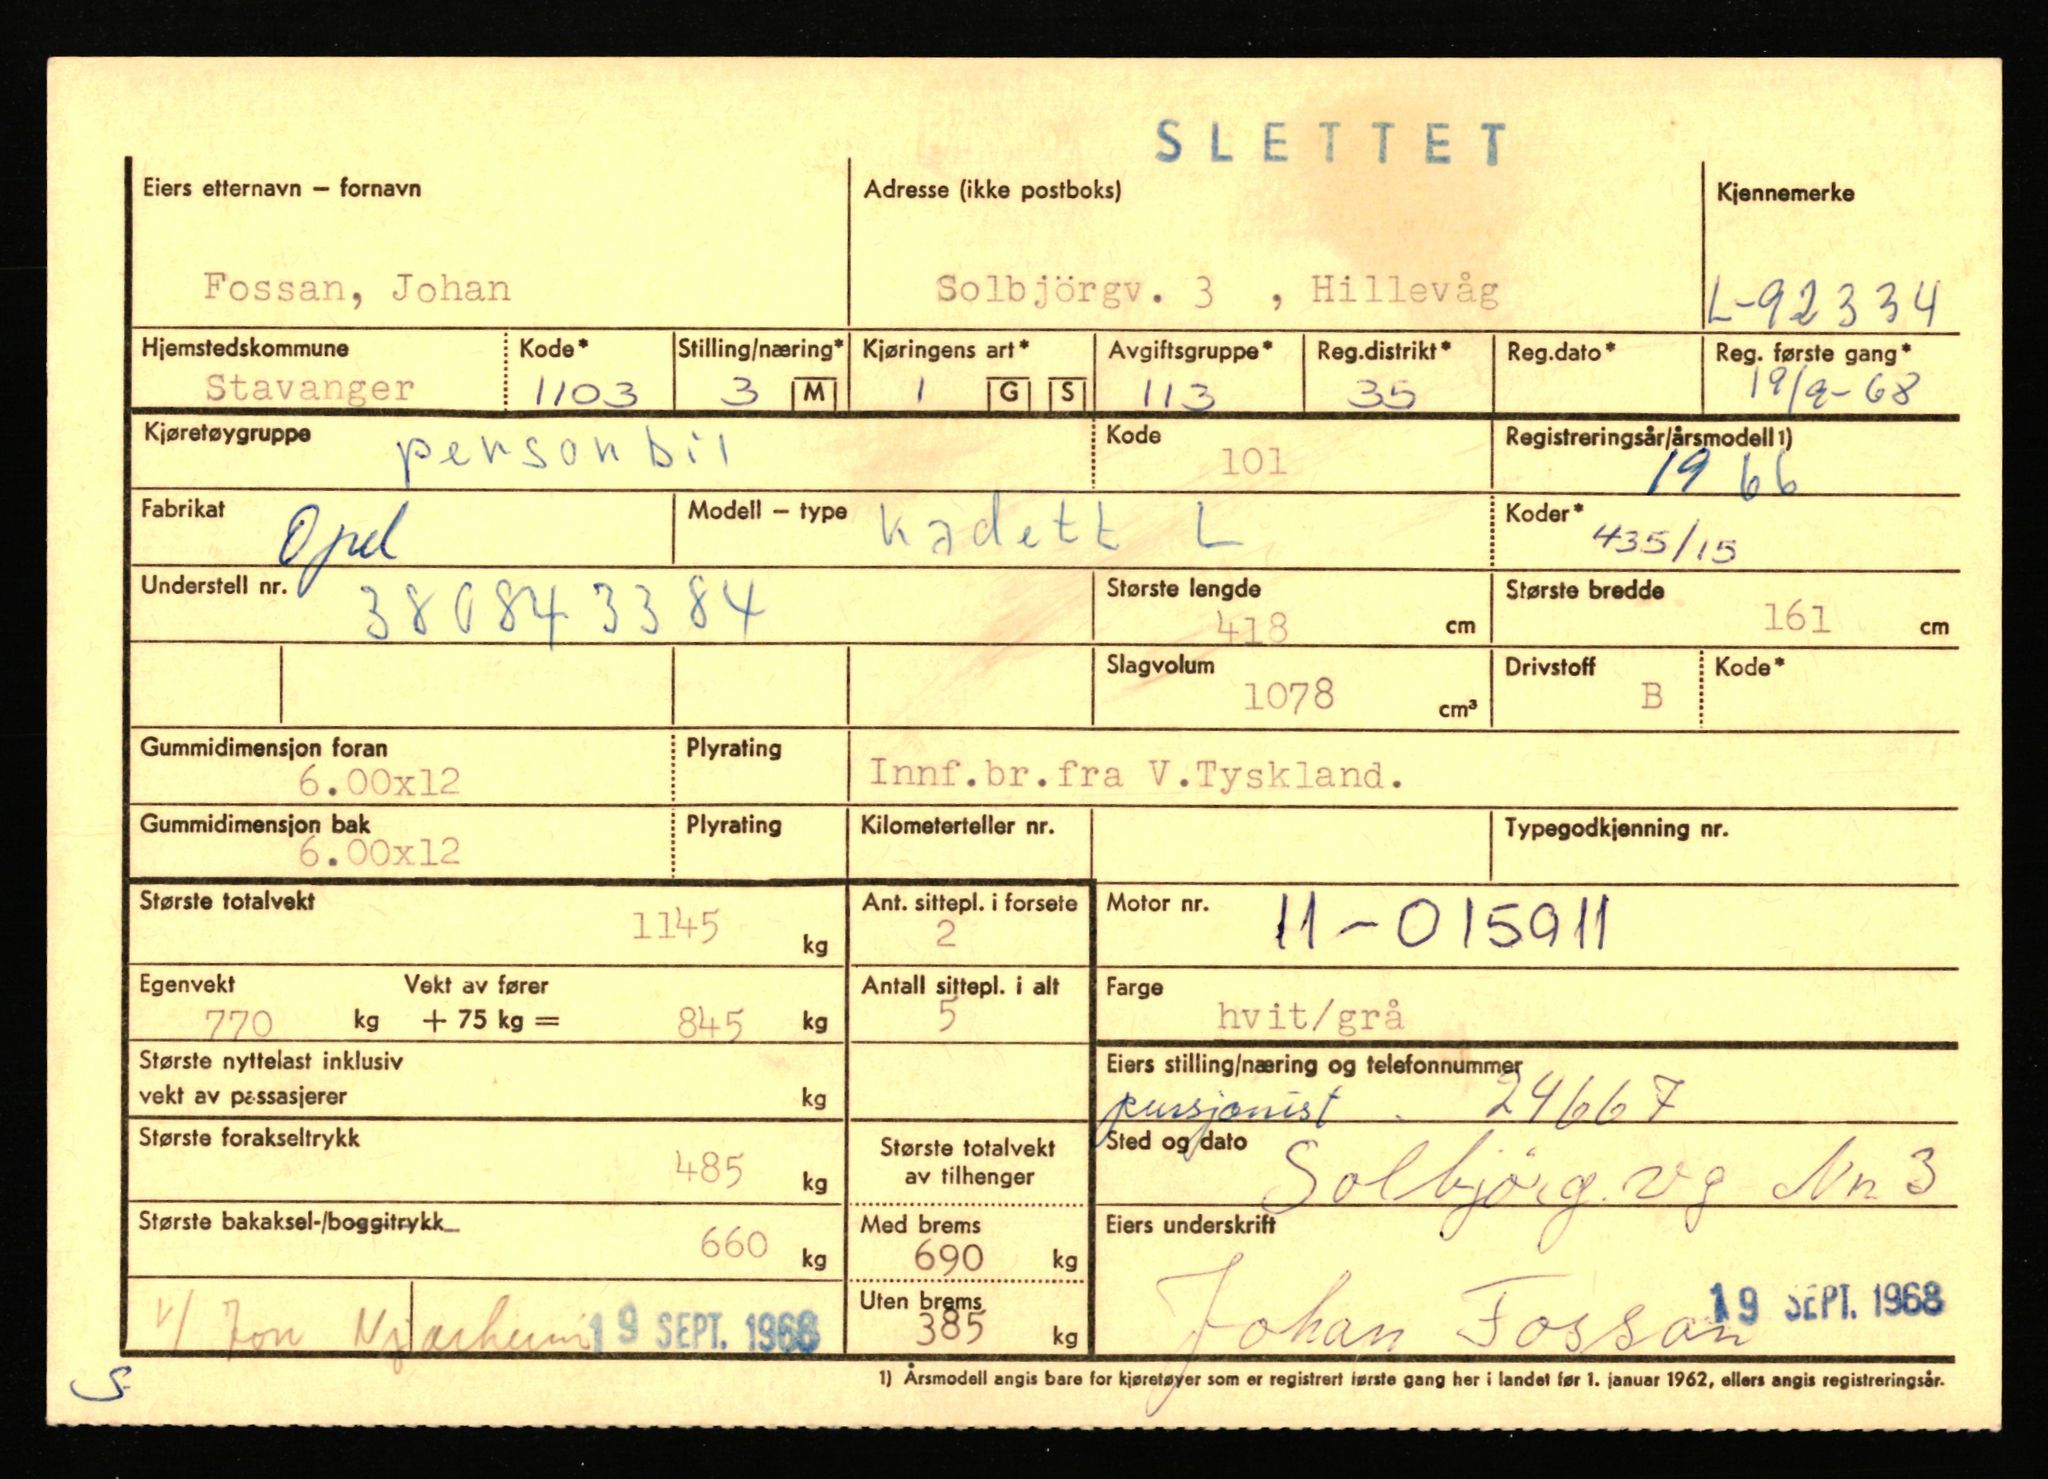 SLETTET
Eiers etternavn – fornavn
Adresse (ikke postboks)
Kjennemerke
Fossan, Johan
Solbjörgv. 3 , Hillevåg
L-92334
Hjemstedskommune
Kode*
Stilling/næring*
Kjøringens art*
Avgiftsgruppe*
Reg.distrikt*
Reg.dato*
Reg. første gang*
Stavanger
1103
3 M
1 G S
113
35
19/9-68
Kjøretøygruppe
personbil
Kode
101
Registreringsår/årsmodell1)
1966
Fabrikat
Opel
Modell – type
Kadett L
Koder*
435/15
Understell nr.
380843384
Største lengde
418 cm
Største bredde
161 cm
Slagvolum
1078 cm³
Drivstoff
B
Kode*
Gummidimensjon foran
6.00x12
Plyrating
Innf.br.fra V.Tyskland.
Gummidimensjon bak
6.00x12
Plyrating
Kilometerteller nr.
Typegodkjenning nr.
Største totalvekt
1145 kg
Ant. sittepl. i forsete
2
Motor nr.
11-015911
Egenvekt
Vekt av fører
770 kg + 75 kg = 845 kg
Antall sittepl. i alt
5
Farge
hvit/grå
Største nyttelast inklusiv
vekt av passasjerer kg
Eiers stilling/næring og telefonnummer
pensjonist . 24667
Største forakseltrykk
485 kg
Største totalvekt
av tilhenger
Sted og dato
Solbjörg.vg Nr. 3
Største bakaksel-/boggitrykk
660 kg
Med brems
690 kg
Eiers underskrift
Johan Fossan
19 SEPT. 1968
v/ Jon Njærheim
19 SEPT. 1968
Uten brems
385 kg
S
1) Årsmodell angis bare for kjøretøyer som er registrert første gang her i landet før 1. januar 1962, ellers angis registreringsår.